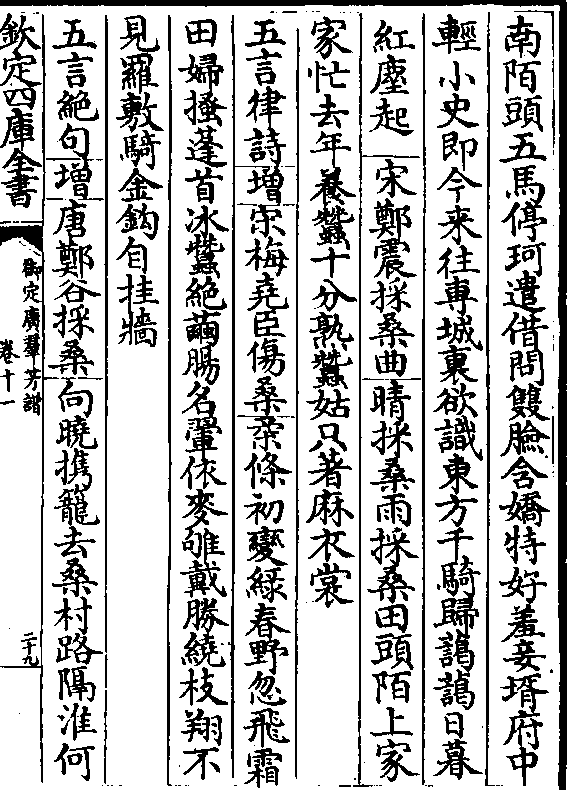 南陌頭五馬停珂遣借問雙臉含嬌特好羞妾壻府中
輕小史即今来往專城裏欲識東方千騎歸藹藹日暮
紅塵起 宋鄭震採桑曲晴採桑雨採桑田頭陌上家
家忙去年養蠶十分熟蠶姑只著麻衣裳
五言律詩增宋梅堯臣傷桑柔條初變綠春野忽飛霜
田婦搔蓬首冰蠶絶繭腸名翬依麥雊戴勝繞枝翔不
見羅敷騎金鈎自挂牆
五言絶句增唐鄭谷採桑向曉攜籠去桑村路隔淮何
欽定四庫全書
御定廣羣芳譜
卷十一
二十九